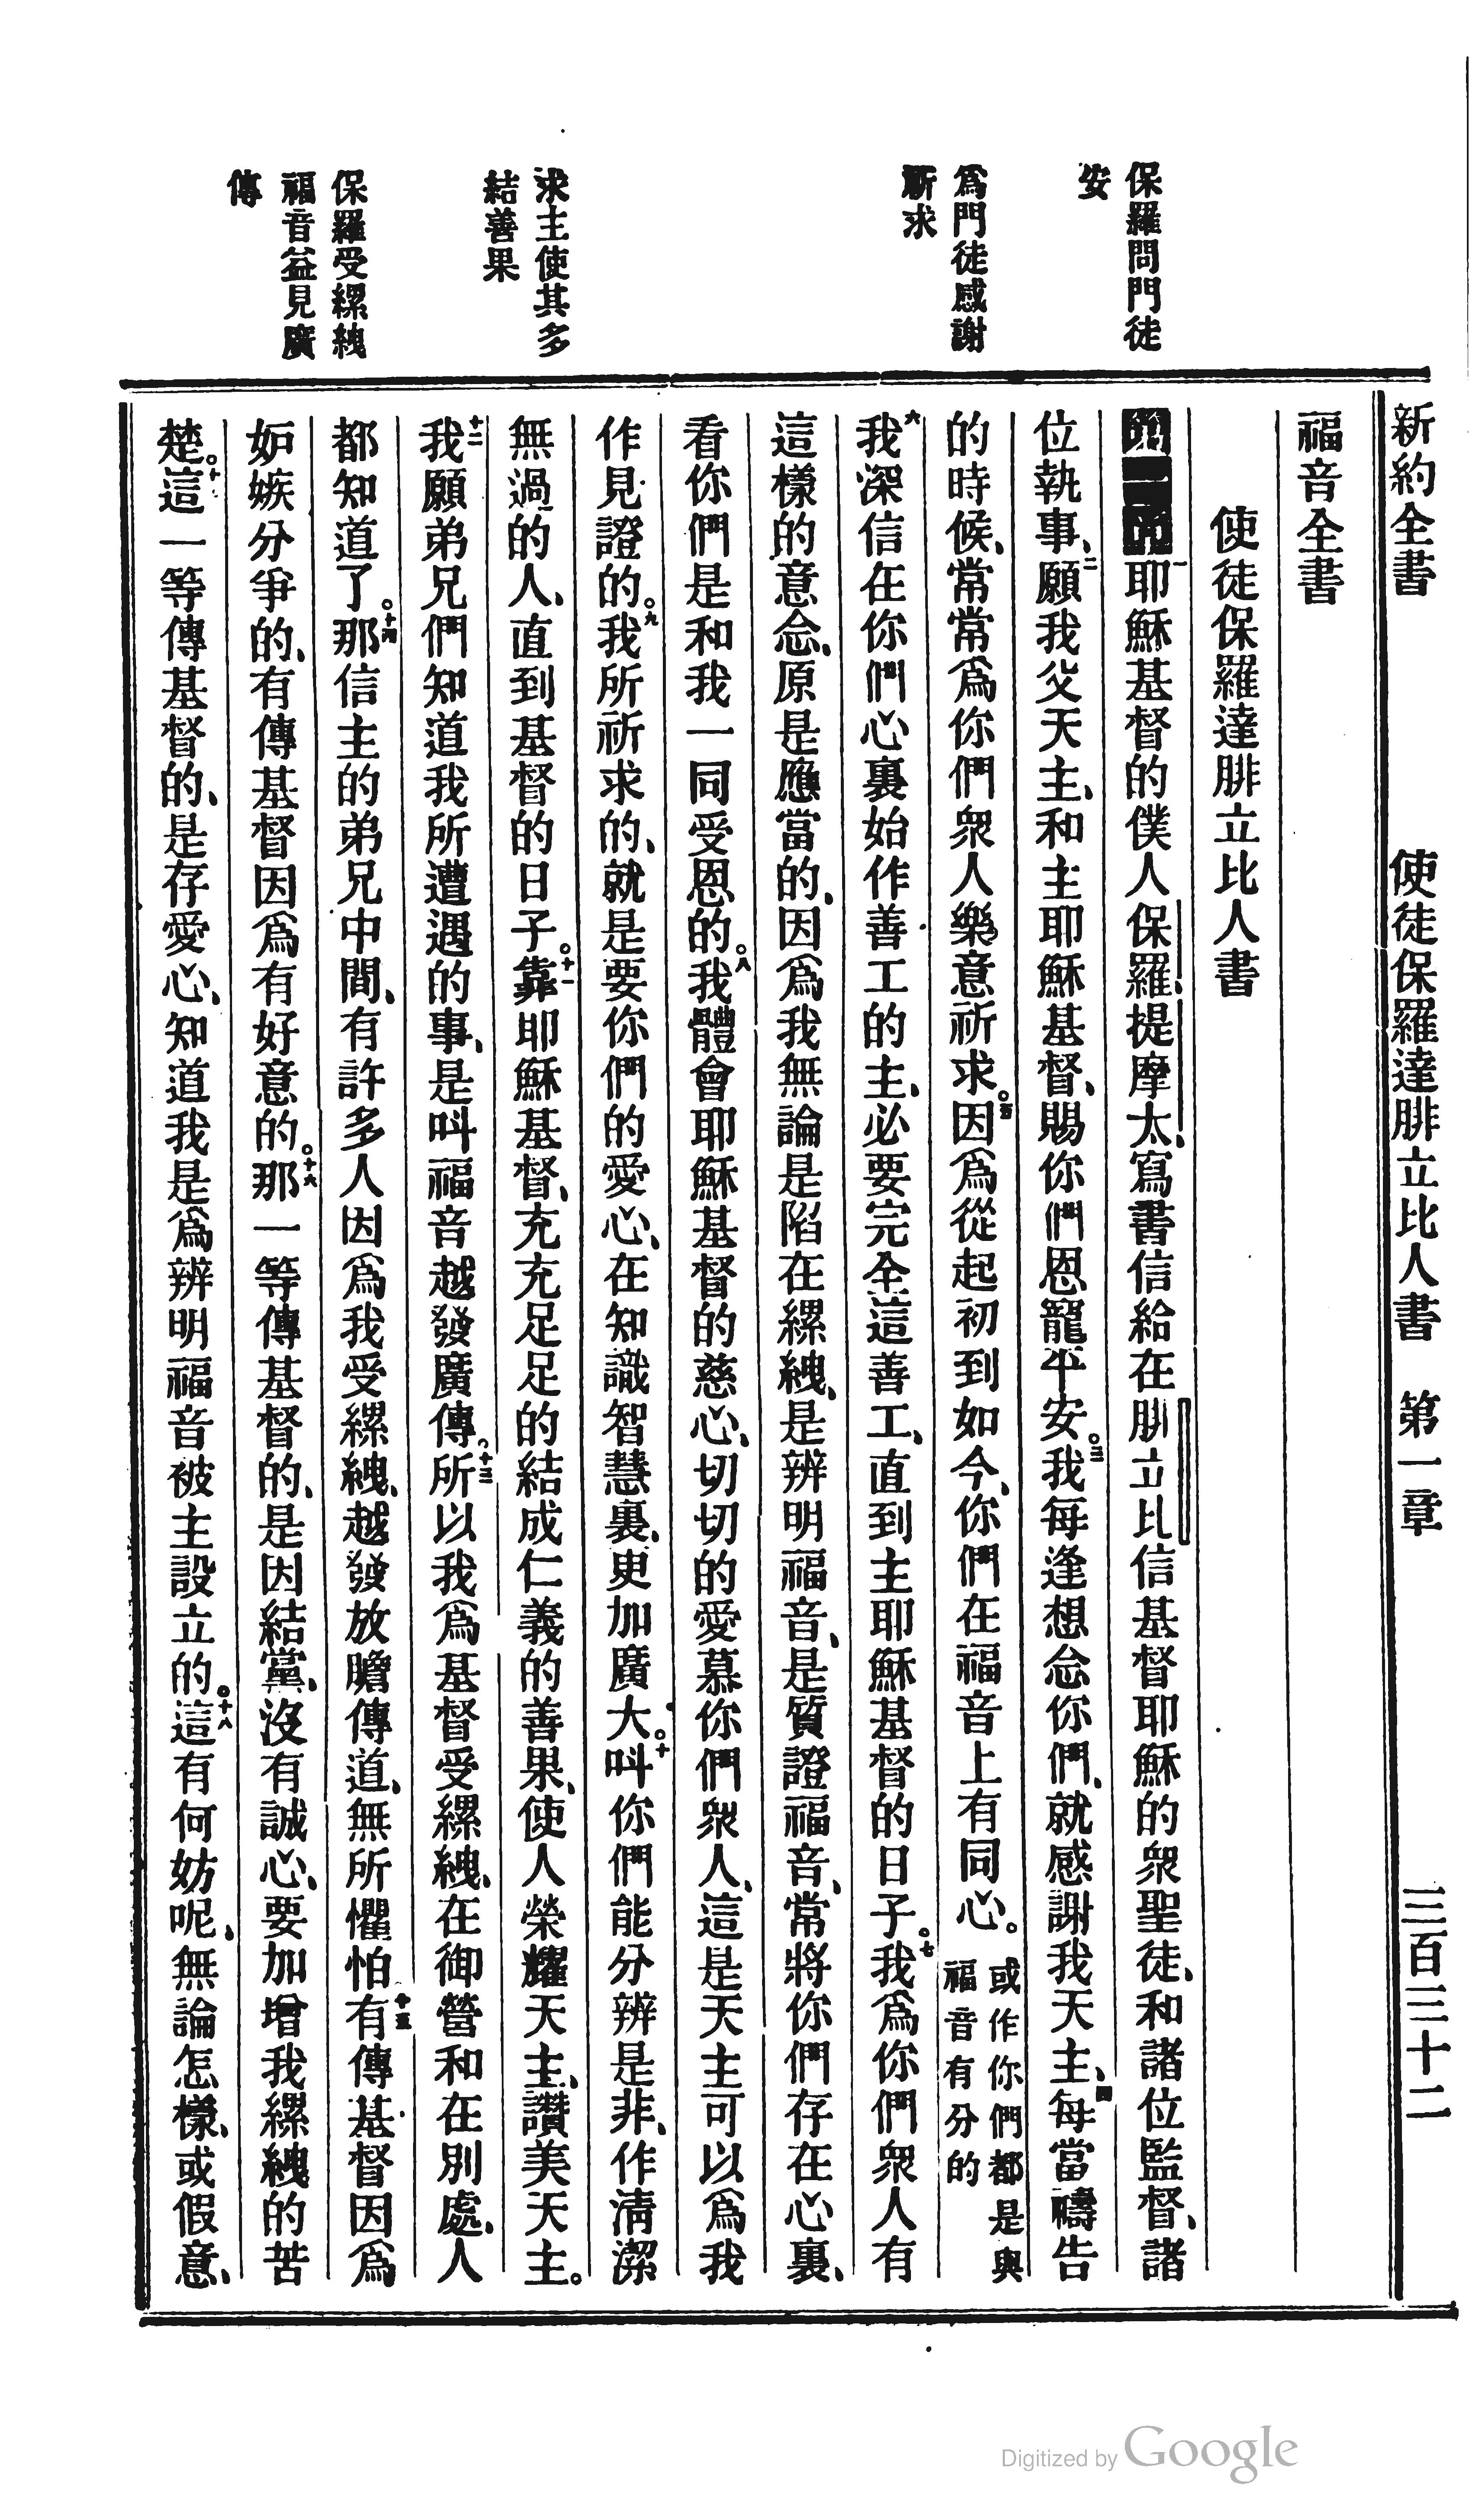 新約全書 使徒保羅達腓立比人書 第一章 三百三十二
福音全書
使徒保羅達腓立比人書
保羅問門徒
安
爲門徒感謝
祈求
求主使其多
結善果
保羅受縲絏
福音益見廣
傳
第一章 一耶穌基督的僕人保羅、提摩太、寫書信給在腓立比信基督耶穌的衆聖徒、和諸位監督、諸
位執事、二願我父天主、和主耶穌基督、賜你們恩寵平安。三我每逢想念你們、就感謝我天主、四每當禱告
的時候、常常爲你們衆人樂意祈求。五因爲從起初到如今、你們在福音上有同心。或作你們都是與福音有分的
六我深信在你們心裏始作善工的主、必要完全這善工、直到主耶穌基督的日子。七我爲你們衆人有
這樣的意念、原是應當的、因爲我無論是陷在縲絏、是辨明福音、是質證福音、常將你們存在心裏、
看你們是和我一同受恩的。八我體會耶穌基督的慈心、切切的愛慕你們衆人、這是天主可以爲我
作見證的。九我所祈求的、就是要你們的愛心、在知識智慧裏、更加廣大。十叫你們能分辨是非、作淸潔
無過的人、直到基督的日子。十一靠耶穌基督、充充足足的結成仁義的善果、使人榮耀天主、讚美天主。
十二我願弟兄們知道我所遭遇的事、是叫福音越發廣傳。十三所以我爲基督受縲絏、在御營和在別處、人
都知道了。十四那信主的弟兄中間、有許多人因爲我受縲絏、越發放膽傳道、無所懼怕十五有傳基督因爲
妒嫉分爭的、有傳基督因爲有好意的。十六那一等傳基督的、是因結黨、沒有誠心、要加增我縲絏的苦
楚。十七這一等傳基督的、是存愛心、知道我是爲辨明福音被主設立的。十八這有何妨呢、無論怎樣、或假意、
Digitized by Google